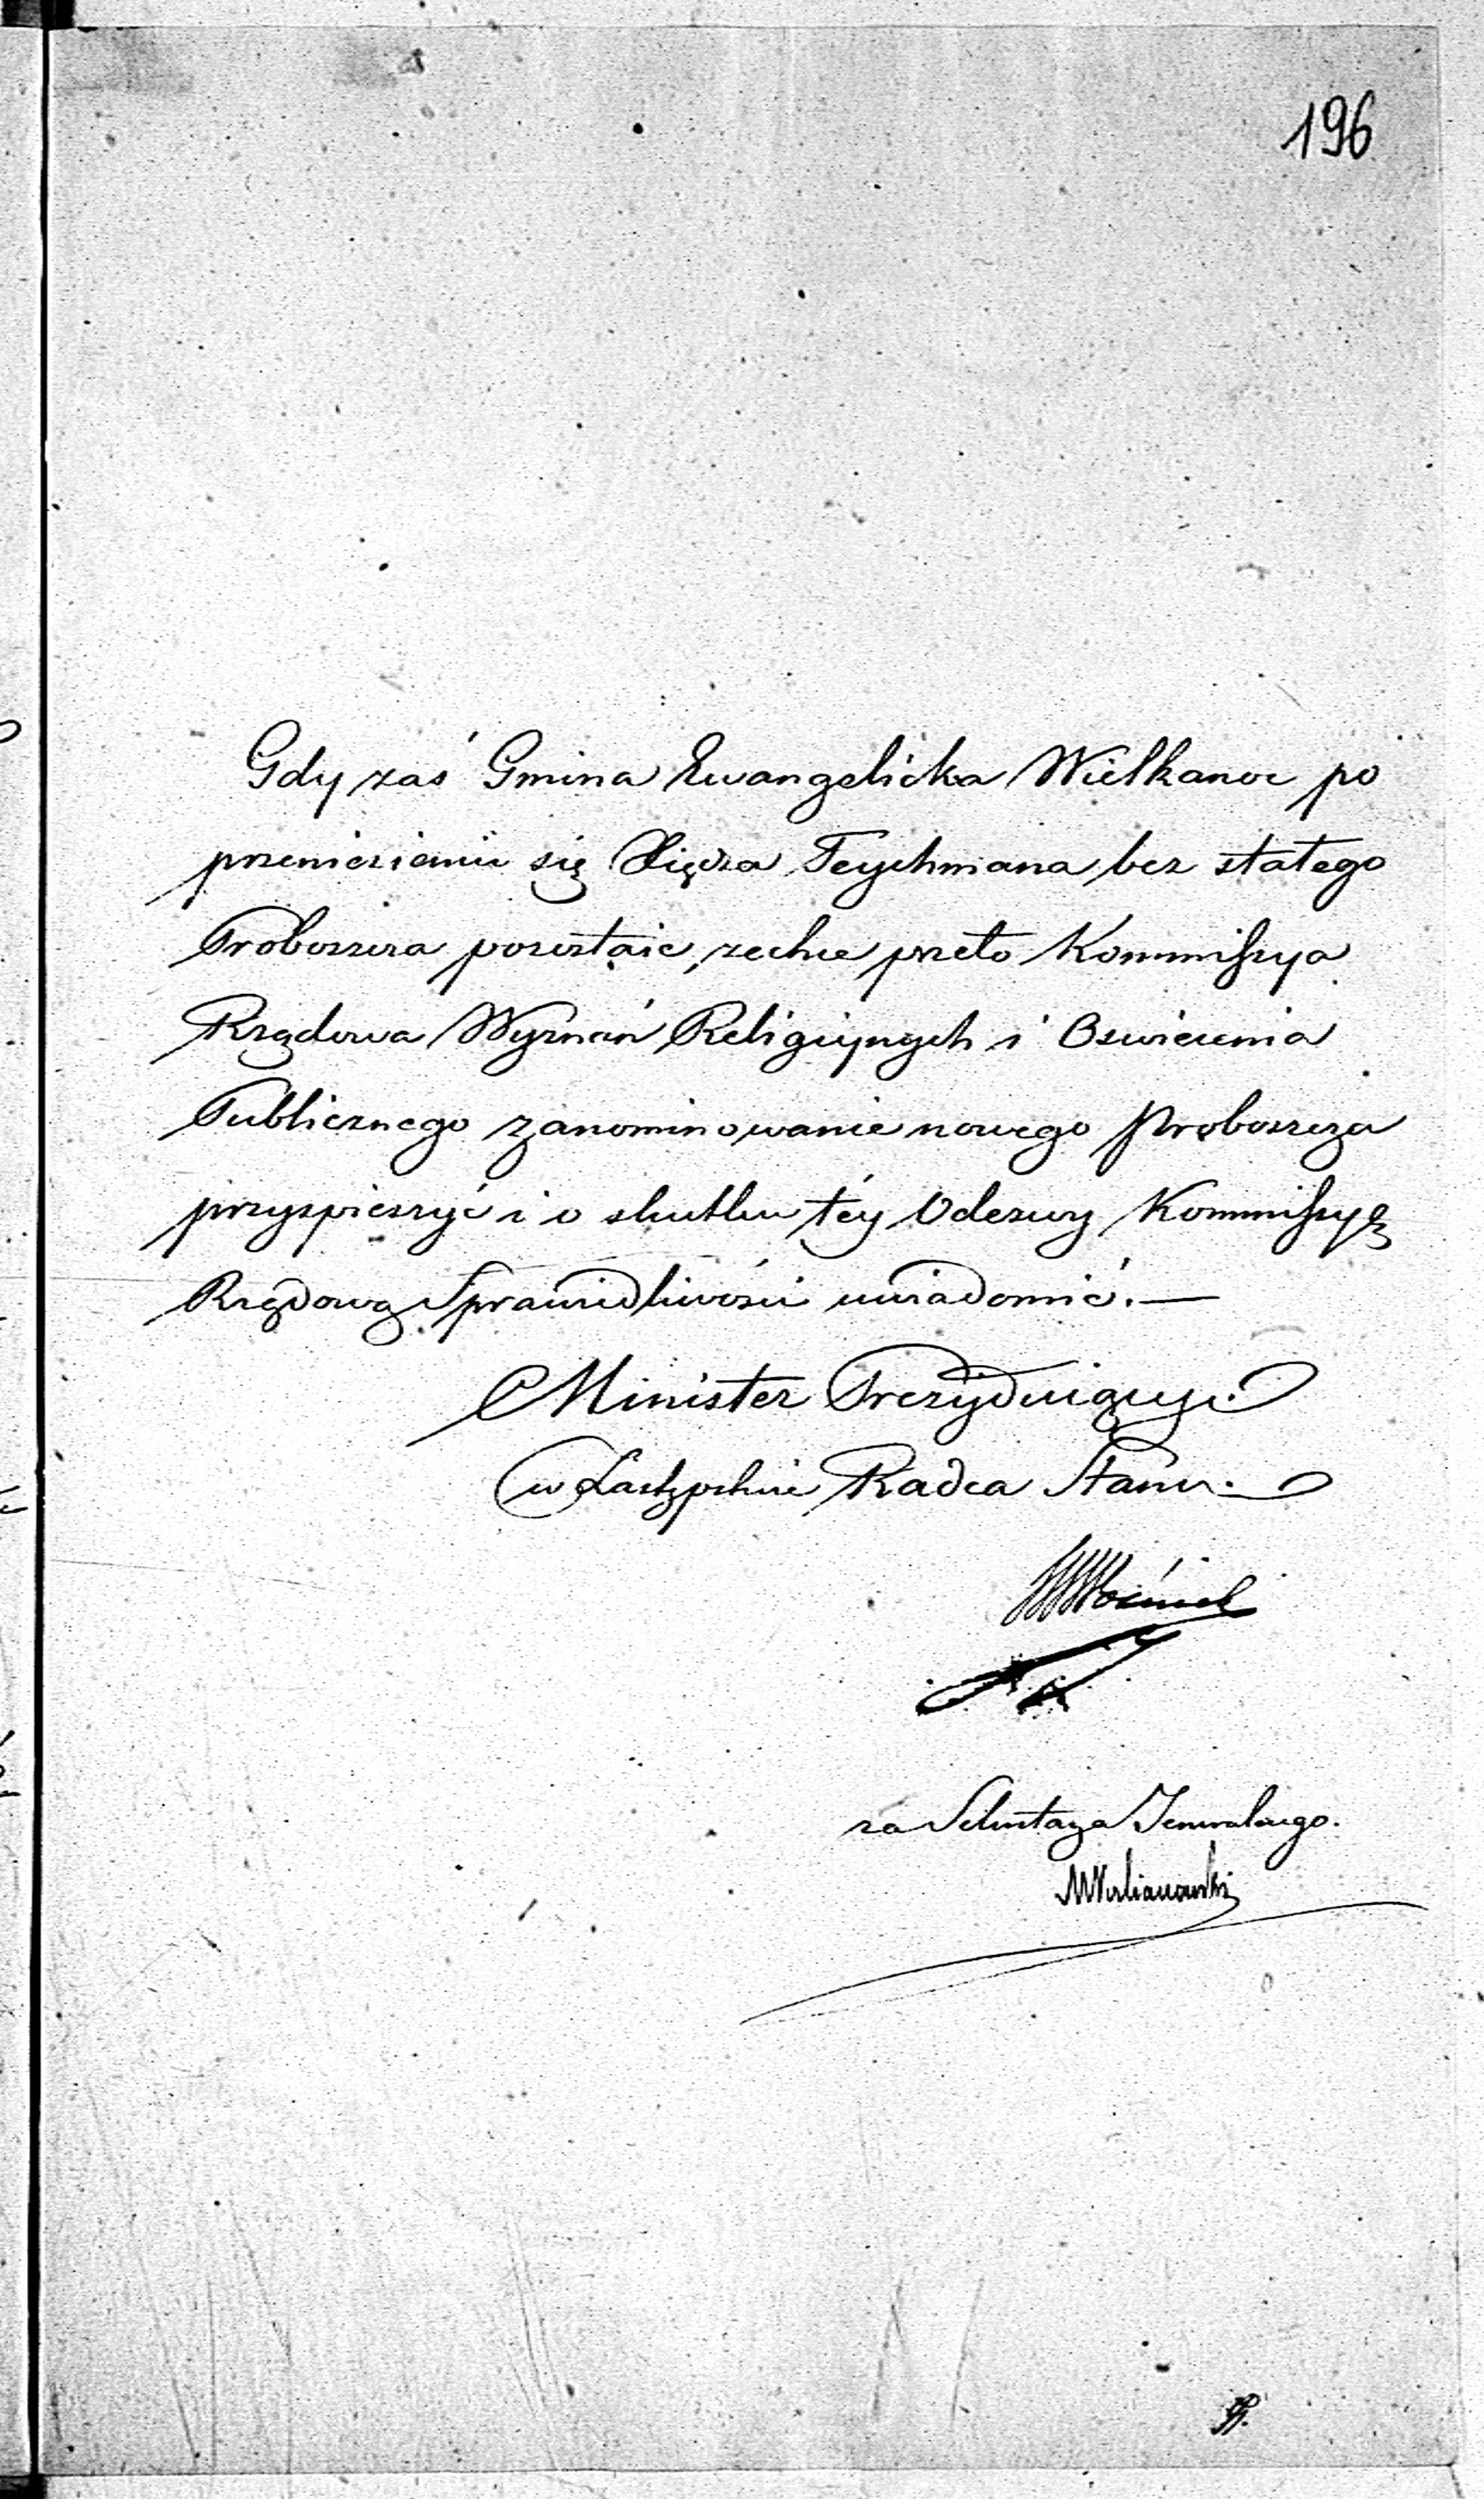 196
Gdy zaś Gmina Ewangelicka Wielkanoc po
przeniesieniu się Xiędza Teychmana bez stałego
Proboszcza pozostaie, zechce przeto Kommissya
Rządowa Wyznań Religiynych i Oswiecenia
Publicznego zanominowanie nowego Proboszcza
przyspieszyć i o skutku téy Odezwy Kommissyę
Rządową Sprawiedliwości uwiadomić.—
Minister Prezyduiący.
w Zastępstwie Radca Stanu.
Woźnicki
za Sekretarza Jeneralnego.